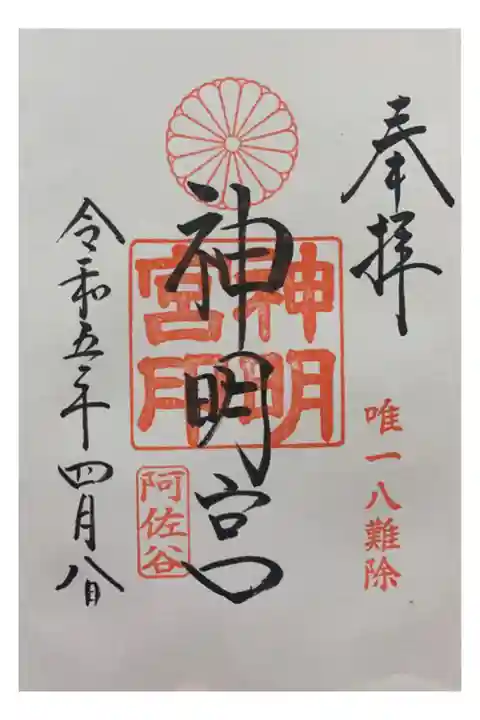 奉拝
唯一八難除
神明宮
神明宮印
阿佐谷
令和五年四月八日